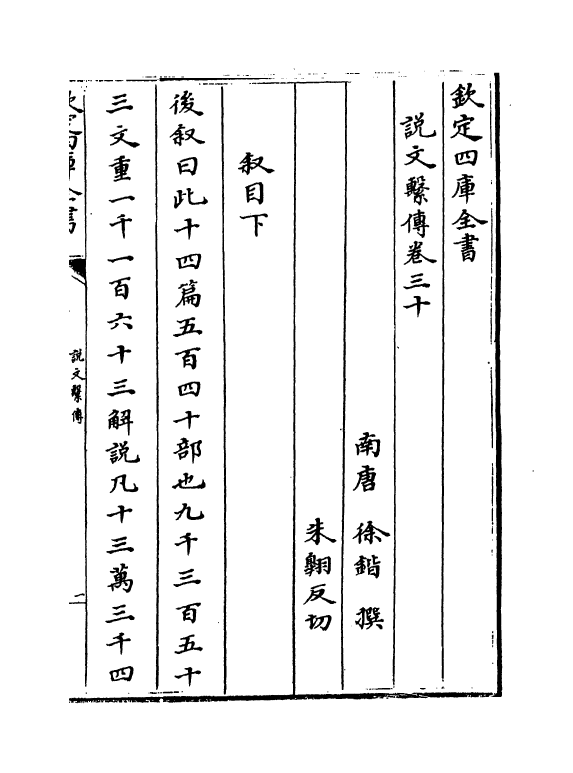 欽定四庫全書
說文繫傳卷三十
南唐 徐鍇 撰
朱翺反切
叙目下
後叙曰此十四篇五百四十部也九千三百五十
三文重一千一百六十三解說凡十三萬三千四
欽定四庫全書
說文繫傳